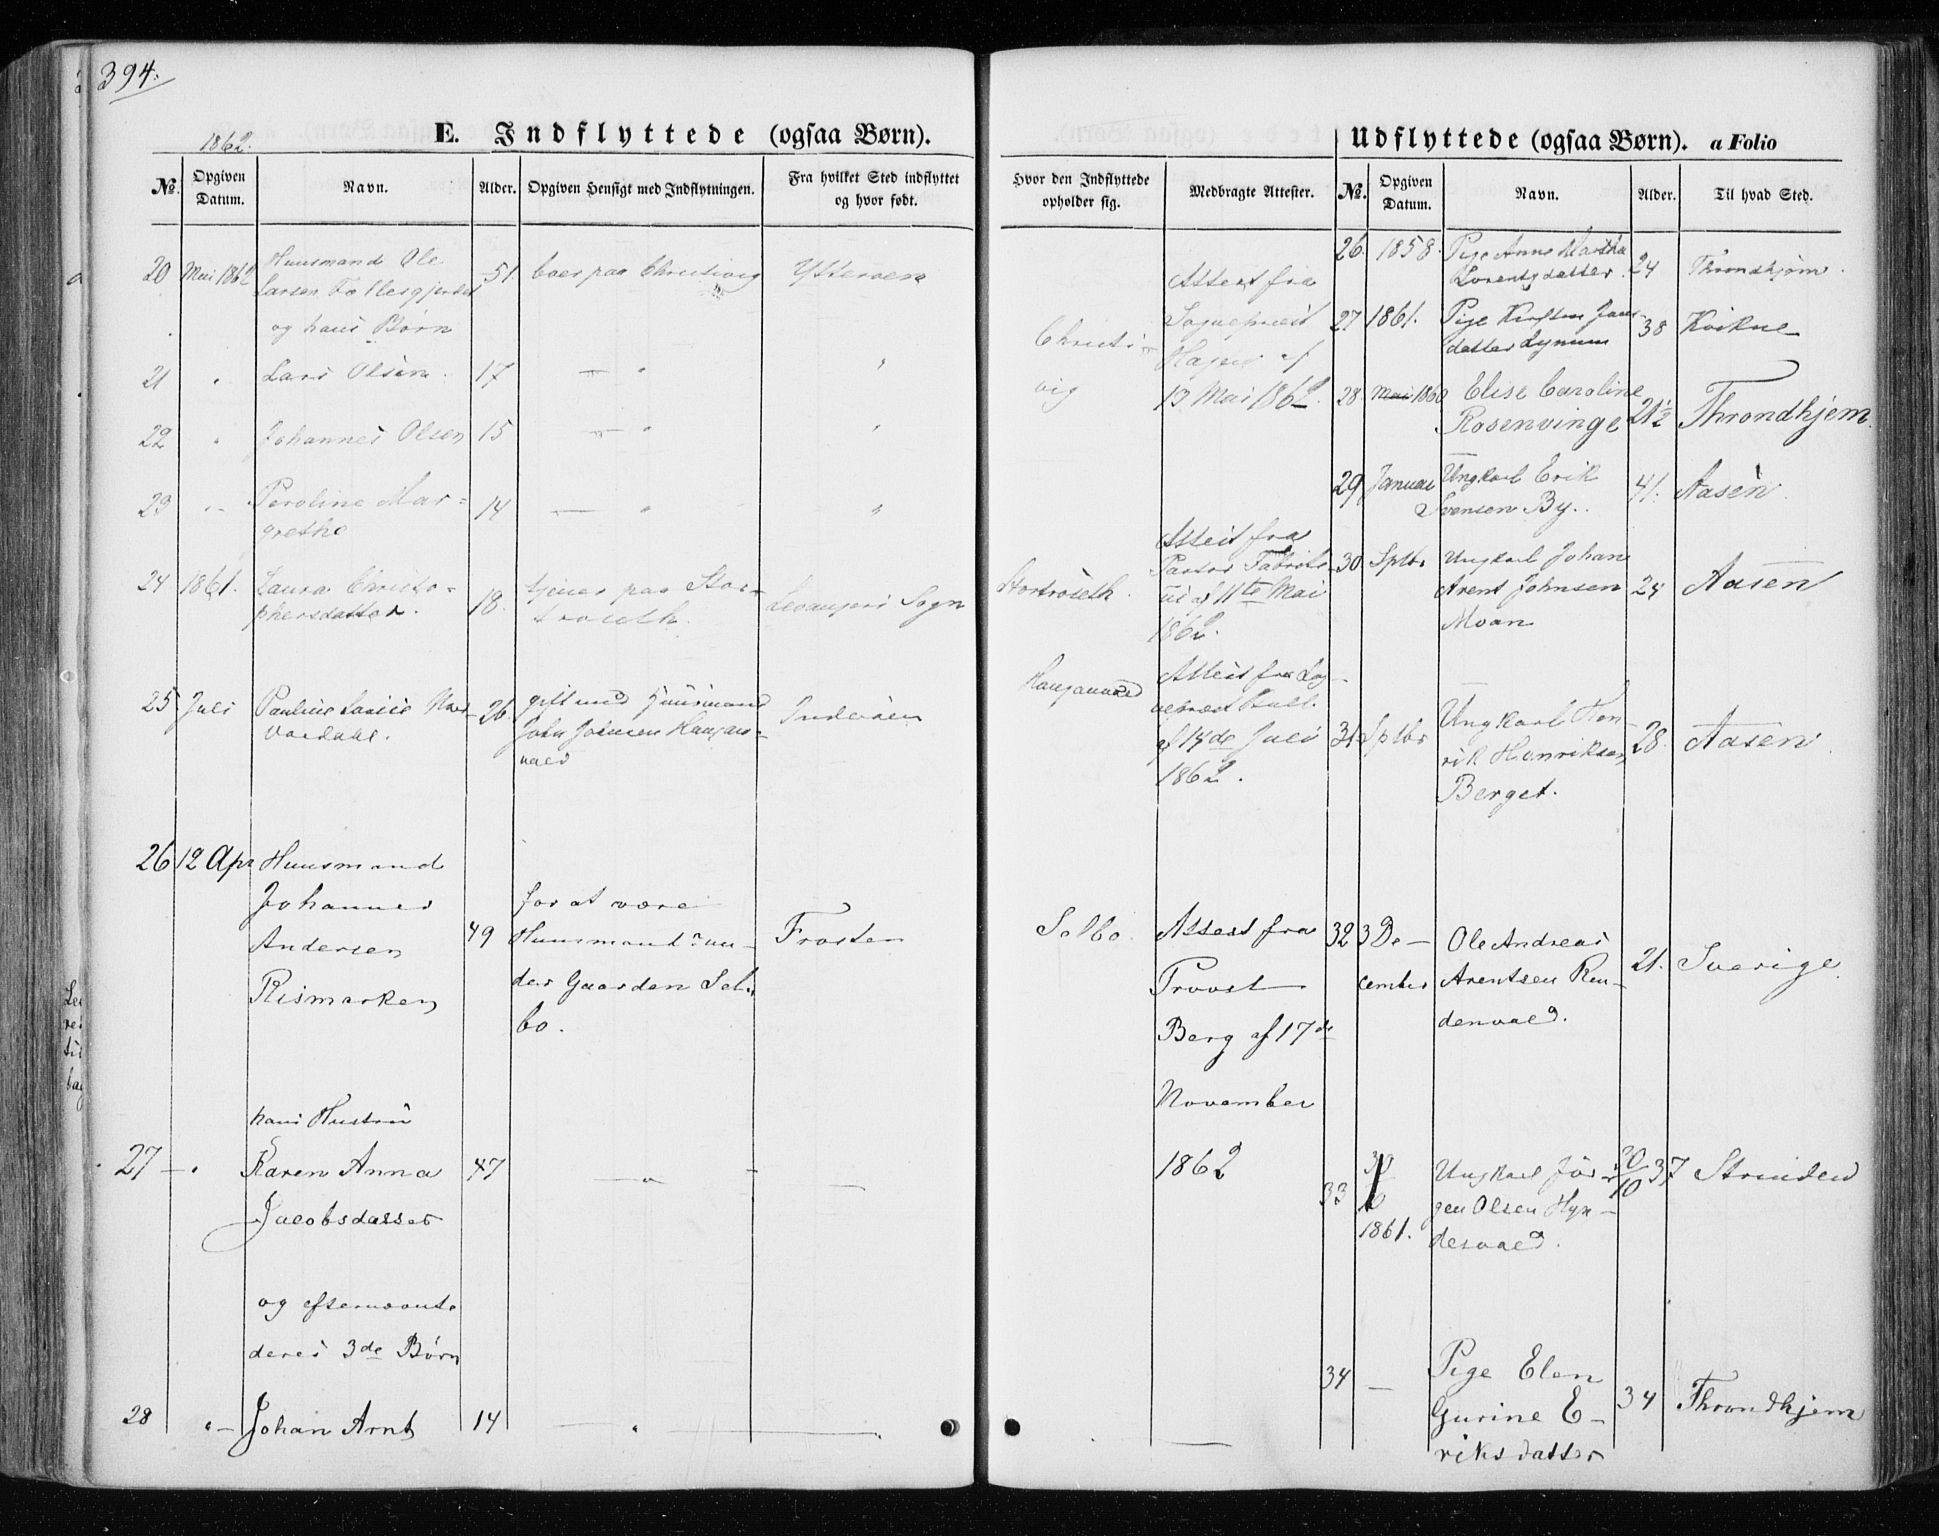 394.
1862.
E. Indflyttede (ogsaa Børn).
No. Opgiven Datum. Navn. Alder. Opgiven Hensigt med Indflytningen. Fra hvilket Sted indflyttet og hvor født.
20 Mai 1862 Huusmand Ole 51. boer paa Christivig Ytterøen
Larsen
og hans Børn
21 " Lars Olsen. 17 — " "
22 " Johannes Olsen 15 — " "
23 " Peroline Mar= 14 — " "
grethe
24 1861. Laura Christo= 18. tjener paa Stor= Levangers Sogn
phersdatter. troseth.
25 Juli Pauline 26 gift med Huusmand Inderøen
John Johnsen Haugan=
vald
26 12 Apr Huusmand
Johannes for at være
Andersen 49 Huusmand un= Frosten
Rismarken der Gaarden Sal=
bo.
hans Hustru
27 — " Karen Anna 47 — " — —
Jacobsdatter
og efternævnte
deres 3de Børn
28 " — Johan Arnt 14 — " —
Udflyttede (ogsaa Børn). a Folio
Hvor den Indflyttede opholder sig. Medbragte Attester. No. Opgiven Datum. Navn. Alder. Til hvad Sted.
Christi=
vig
Attest fra
Sognepræst
Hagen af
13 Mai 1862.
Stortroseth.
Attest fra
Pastor Fabrit=
us af 11te Mai
1862.
Hauganvald
Attest fra Sog=
nepræst Bull.
af 14de Juli
1862.
Salbo.
Attest fra
Provst
Berg af 17de
November
1862
26. 1858. Pige Anne Martha 24 Throndhjem.
Lorentsdatter
27 1861. Pige Kirsten Jans= 38 Kvikne
datter Lynum
28. Mai 1860 Elise Caroline 21½ Throndhjem.
Rosenvinge
29 Januar Ungkarl Erik 41. Aasen.
Svensen By.
30 Sptbr Ungkarl Johan
Arent Johnsen 24 Aasen
Moan
31 Sptbr Ungkarl Hen= 28. Aasen.
rik Henriksen
Berget.
32 3 De= Ole Andreas 21. Sverige.
cember Arentsen Rin=
denvald.
33 1861. Ungkarl Jör= 30/10 37 Strinden
gen Olsen Hyn=
desvald.
34 — Pige Elen
Gurine E= 34 Throndhjem
riksdatter